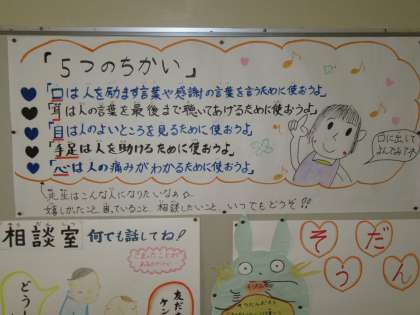 「5つのちかい」
「口は人を励ます言葉や感謝の言葉を言うために使おうよ」
「耳は人の言葉を最後まで聴いてあげるために使おうよ」
「目は人のよいところを見るために使おうよ」
「手足は人を助けるために使おうよ」
「心は人の痛みがわかるために使おうよ」
口に出して
よんでみてね
先生はこんな人になりたいなぁ☆
嬉しかったこと、困っていること、相談したいこと、いつでもどうぞ!!
相談室 何でも話してね♪
そうだん
どうし
友だち
ケン